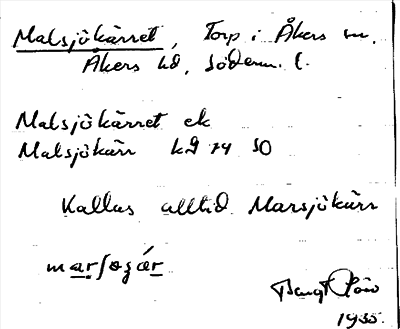 Malsjökärret, Torp i Åkers sn,
Åkers hd, Söderm. l.
Malsjökärret ek
Malsjökärr kD 74 SO
Kallas alltid Marsjökärr
Bengt
1935.